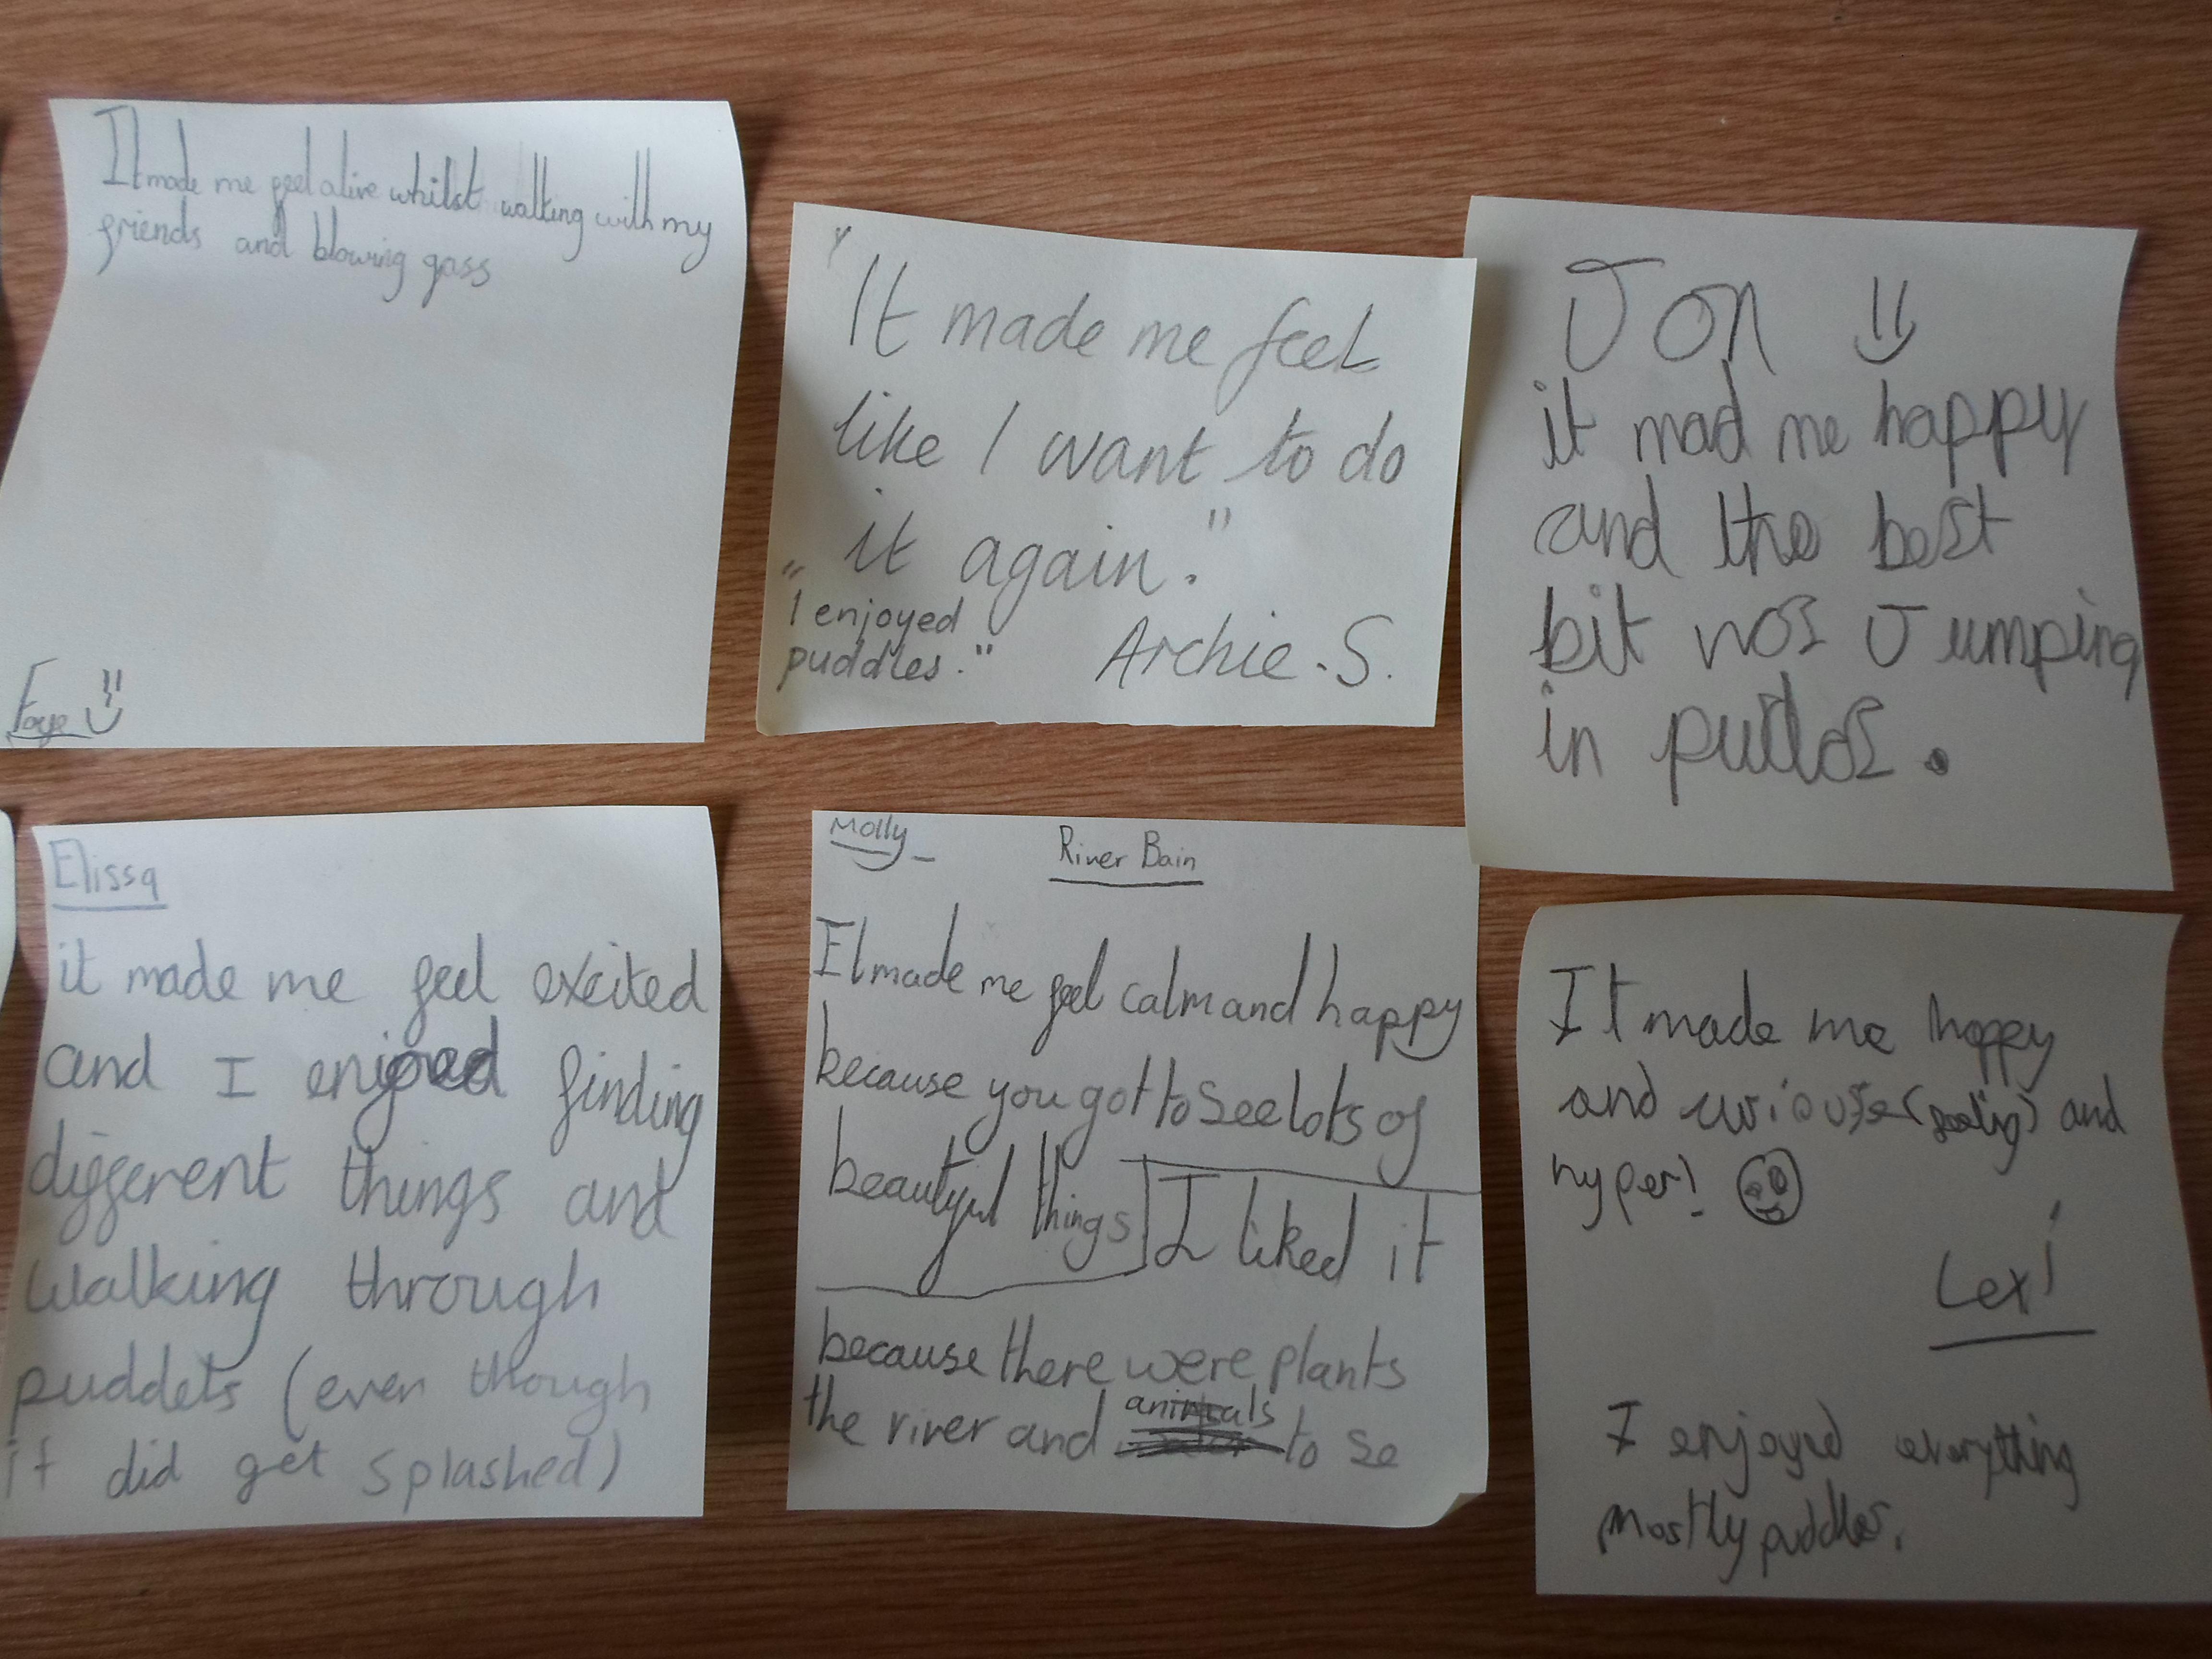 It made me feel alive whilst walking with my
friends and blowing gass
Faye
"It made me feel
like I want to do
it again."
"I enjoyed
puddles."
Archie.S.
Jon
it mad me happy
and the best
bit wos Jumping
in pudlos.
Elissa
it made me feel excited
and I enjoyed finding
different things and
walking through
puddets (even though
it did get splashed)
Molly
River Bain
It made me feel calm and happy
because you got to see lots of
beautiful things I liked it
because there were plants
the river and animals to se
It made me happy
and (feeling) and
hyper!
Lexi
I enjoyed everything
mostly puddles.